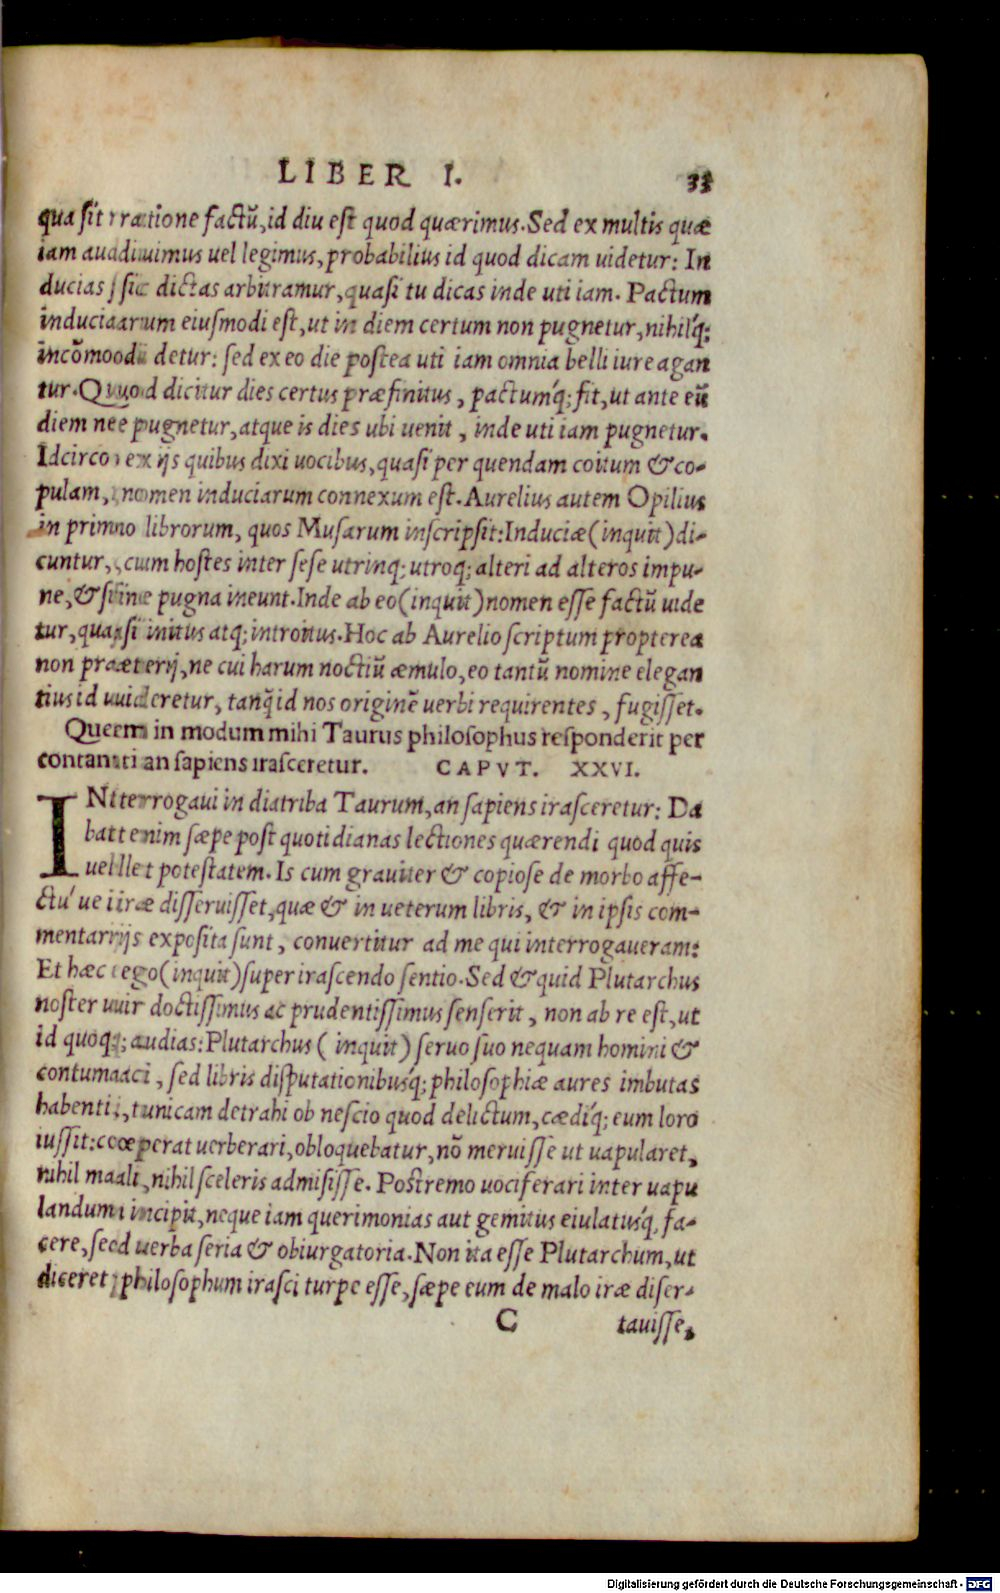 LIBER I. 33
qua sit ratione factũ, id diu est quod quærimus. Sed ex multis quæ
iam audiuimus uel legimus, probabilius id quod dicam uidetur: In
ducias sic dictas arbitramur, quasi tu dicas inde uti iam. Pactum
induciarum eiusmodi est, ut in diem certum non pugnetur, nihilq́;
incõmodi detur: sed ex eo die postea uti iam omnia belli iure agan
tur. Quod dicitur dies certus præfinitus, pactumq́; fit, ut ante eũ
diem ne pugnetur, atque is dies ubi uenit, inde uti iam pugnetur.
Idcirco ex ijs quibus dixi uocibus, quasi per quendam coitum & co-
pulam, nomen induciarum connexum est. Aurelius autem Opilius
in primo librorum, quos Musarum inscripsit: Induciæ (inquit) di-
cuntur, cum hostes inter sese utrinq; utroq; alteri ad alteros impu-
ne, & sine pugna ineunt. Inde ab eo (inquit) nomen esse factũ uide
tur, quasi initus atq; introitus. Hoc ab Aurelio scriptum propterea
non præterij, ne cui harum noctiũ æmulo, eo tantũ nomine elegan
tius id uideretur, tanq̃ id nos originẽ uerbi requirentes, fugisset.
Quem in modum mihi Taurus philosophus responderit per
contanti an sapiens irasceretur. CAPVT. XXVI.
INterrogaui in diatriba Taurum, an sapiens irasceretur: Da
bat enim sæpe post quotidianas lectiones quærendi quod quis
uellet potestatem. Is cum grauiter & copiose de morbo affe-
ctu'ue iræ disseruisset, quæ & in ueterum libris, & in ipsis com-
mentarijs exposita sunt, conuertitur ad me qui interrogaueram:
Et hæc ego (inquit) super irascendo sentio. Sed & quid Plutarchus
noster uir doctissimus ac prudentissimus senserit, non ab re est, ut
id quoq; audias: Plutarchus (inquit) seruo suo nequam homini &
contumaci, sed libris disputationibusq́; philosophiæ aures imbutas
habenti, tunicam detrahi ob nescio quod delictum, cædiq́; eum loro
iussit: cœperat uerberari, obloquebatur, nõ meruisse ut uapularet,
nihil mali, nihil sceleris admisisse. Postremo uociferari inter uapu
landum incipit, neque iam querimonias aut gemitus eiulatusq́, fa-
cere, sed uerba seria & obiurgatoria. Non ita esse Plutarchum, ut
diceret, philosophum irasci turpe esse, sæpe eum de malo iræ disser-
C tauisse,
Digitalisierung gefördert durch die Deutsche Forschungsgemeinschaft - DFG